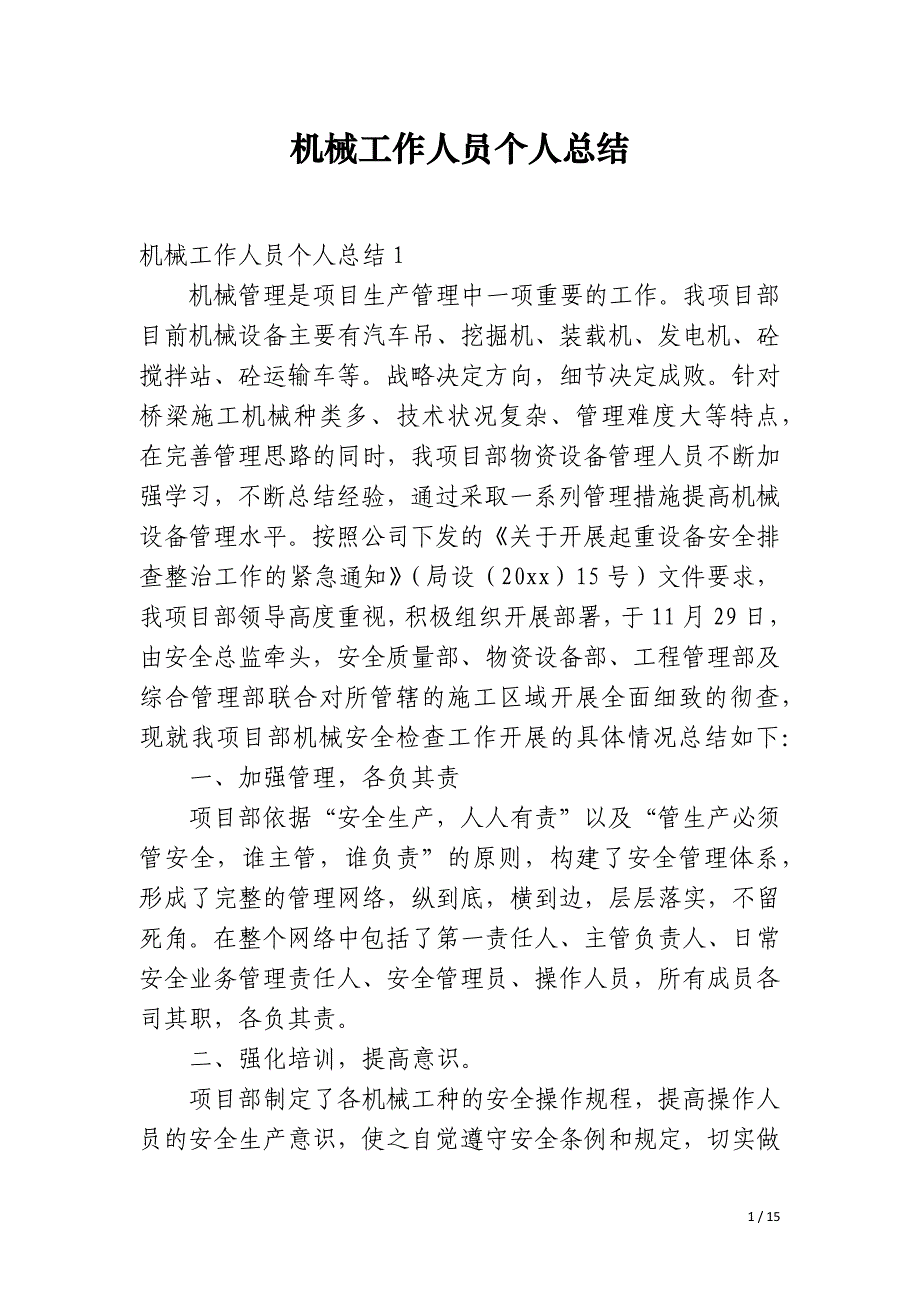 机械工作人员个人总结
机械工作人员个人总结1
机械管理是项目生产管理中一项重要的工作。我项目部
目前机械设备主要有汽车吊、挖掘机、装载机、发电机、砼
搅拌站、砼运输车等。战略决定方向，细节决定成败。针对
桥梁施工机械种类多、技术状况复杂、管理难度大等特点，
在完善管理思路的同时，我项目部物资设备管理人员不断加
强学习，不断总结经验，通过采取一系列管理措施提高机械
设备管理水平。按照公司下发的《关于开展起重设备安全排
查整治工作的紧急通知》（局设（20xx）15号）文件要求，
我项目部领导高度重视，积极组织开展部署，于11月29日，
由安全总监牵头，安全质量部、物资设备部、工程管理部及
综合管理部联合对所管辖的施工区域开展全面细致的彻查，
现就我项目部机械安全检查工作开展的具体情况总结如下：
一、加强管理，各负其责
项目部依据“安全生产，人人有责”以及“管生产必须
管安全，谁主管，谁负责”的原则，构建了安全管理体系，
形成了完整的管理网络，纵到底，横到边，层层落实，不留
死角。在整个网络中包括了第一责任人、主管负责人、日常
安全业务管理责任人、安全管理员、操作人员，所有成员各
司其职，各负其责。
二、强化培训，提高意识。
项目部制定了各机械工种的安全操作规程，提高操作人
员的安全生产意识，使之自觉遵守安全条例和规定，切实做
1 / 15